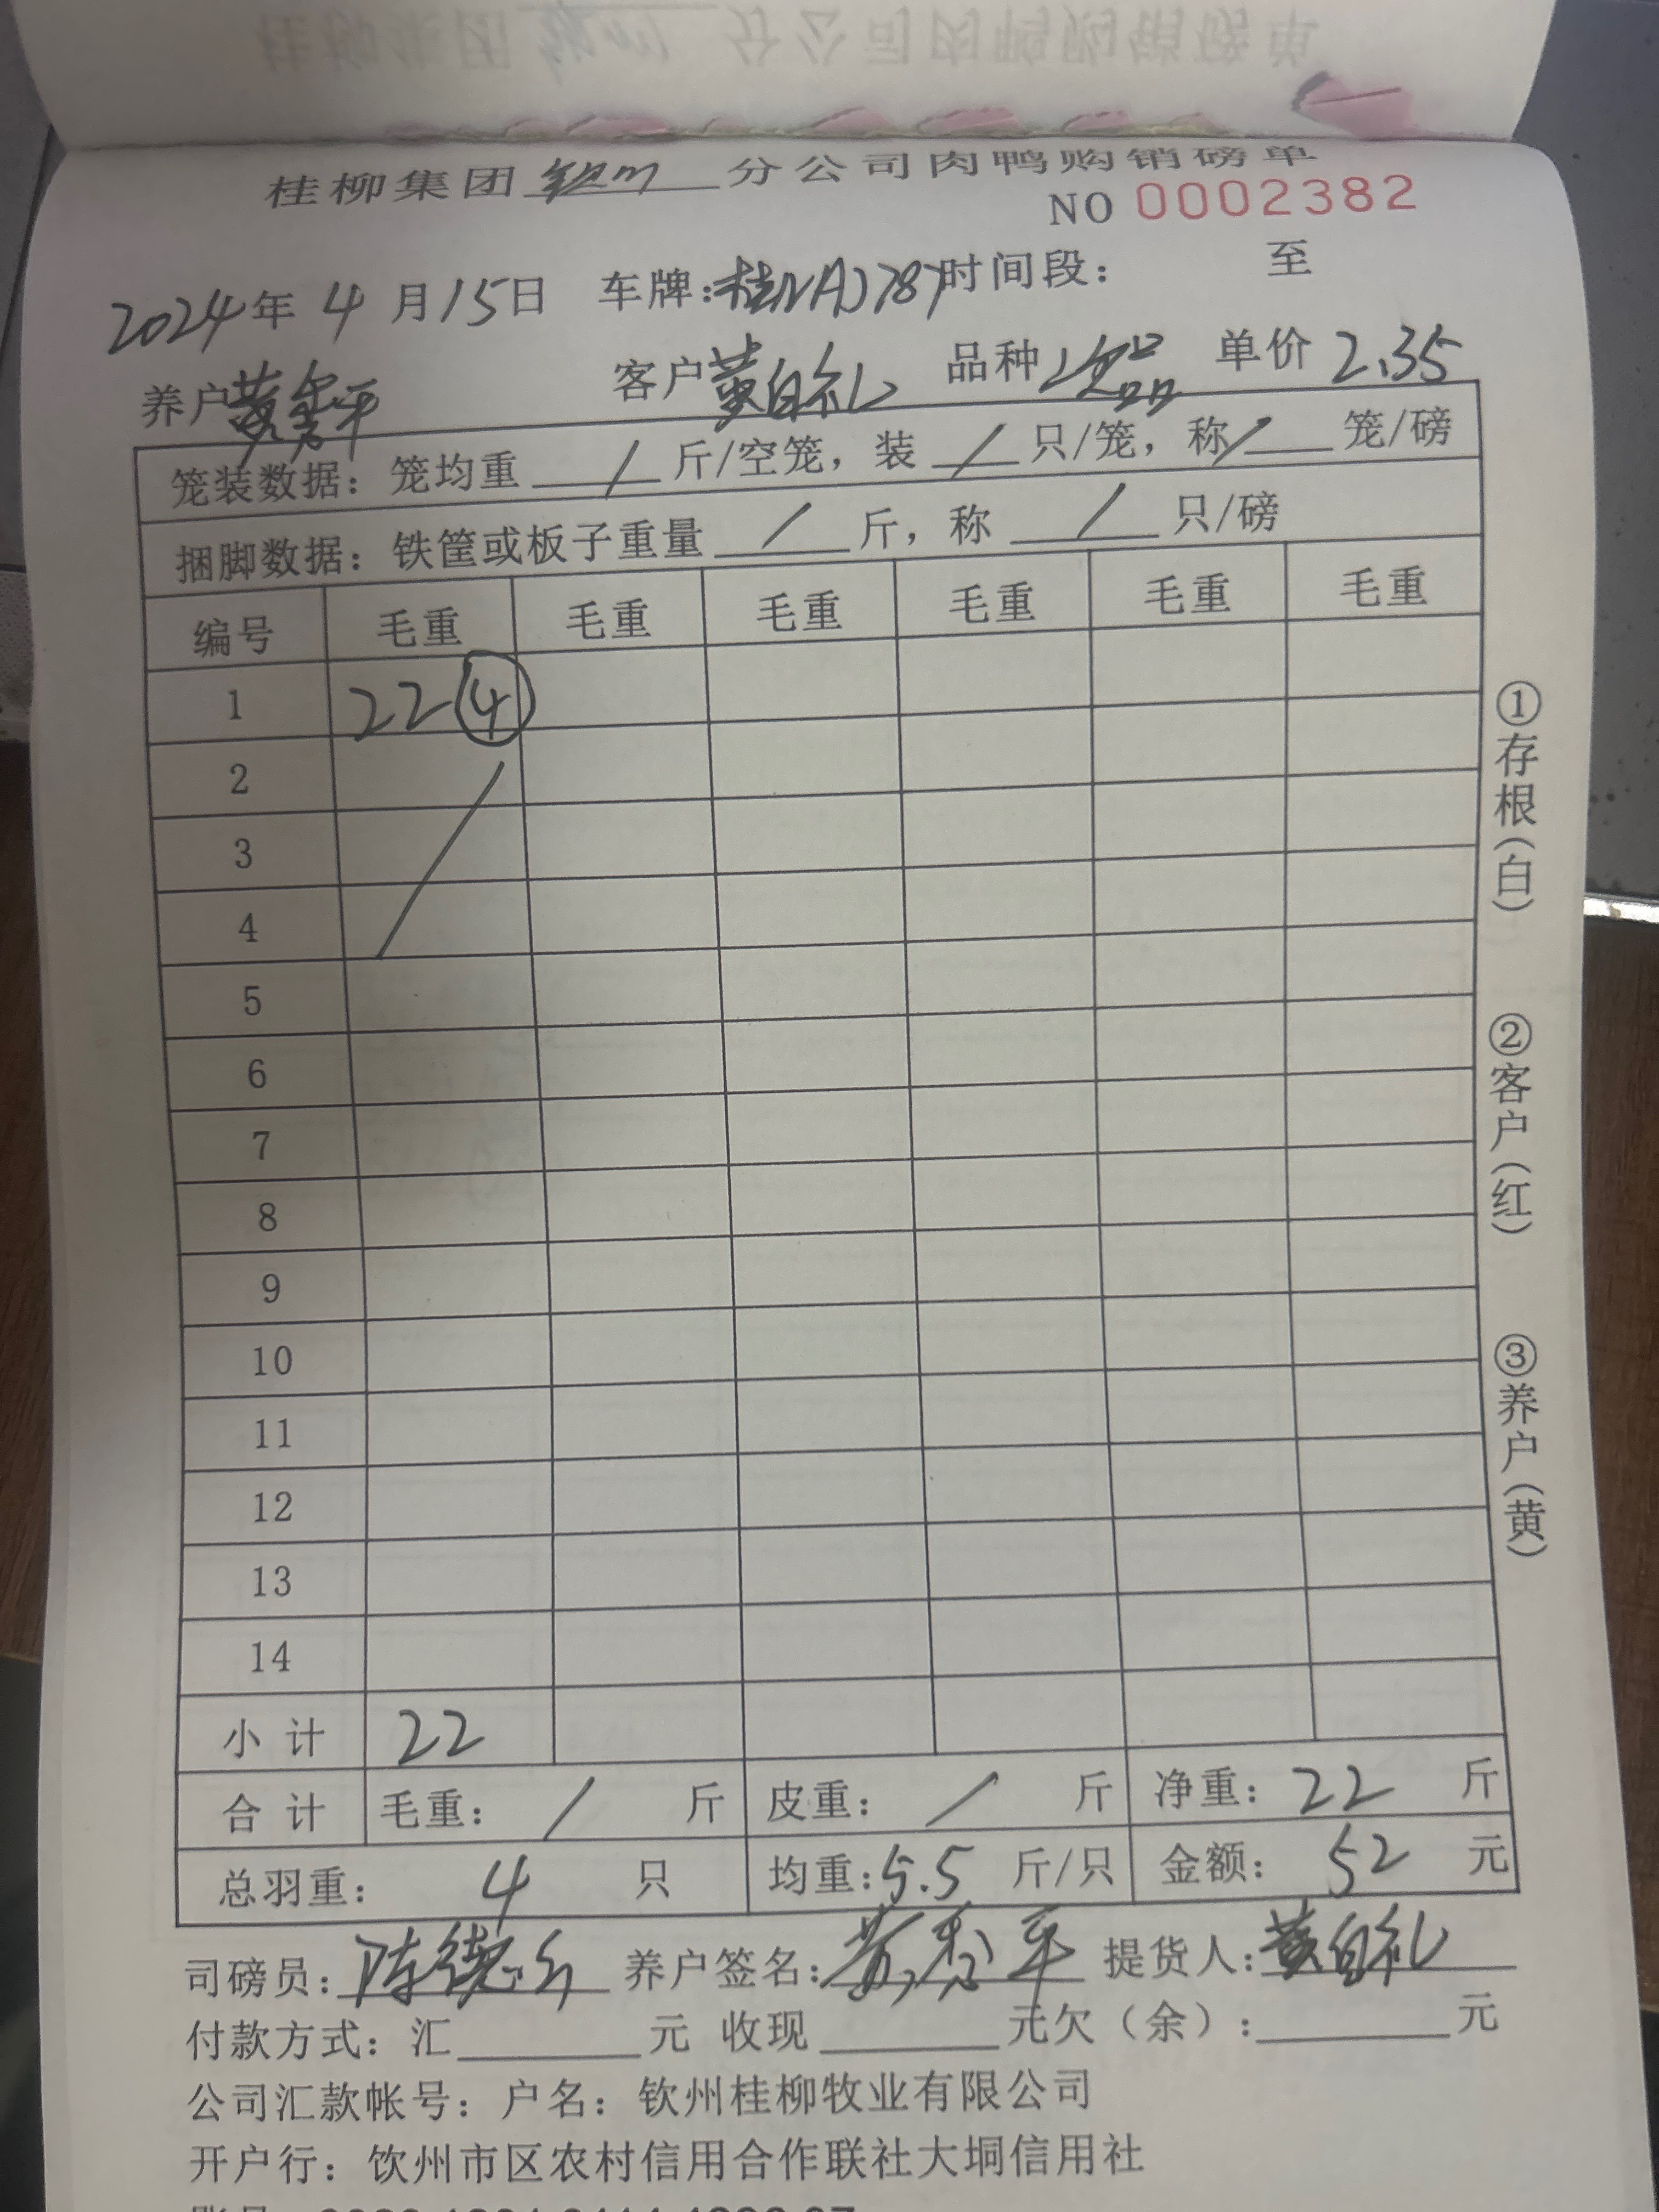 桂柳集团钦州分公司肉鸭购销磅单
NO 0002382
2024年 4 月15日 车牌: 时间段: 至
养户 客户黄自礼 品种次品 单价 2.35
笼装数据: 笼均重 / 斤/空笼, 装 / 只/笼, 称 / 笼/磅
捆脚数据: 铁筐或板子重量 / 斤, 称 / 只/磅
编号 毛重 毛重 毛重 毛重 毛重 毛重
1 22 ④
2
3
4
5
6
7
8
9
10
11
12
13
14
小 计 22
合 计 毛重: / 斤 皮重: / 斤 净重: 22 斤
总羽重: 4 只 均重:5.5 斤/只 金额: 52 元
司磅员: 养户签名: 提货人:黄自礼
付款方式: 汇 元 收现 元欠(余): 元
公司汇款帐号: 户名: 钦州桂柳牧业有限公司
开户行: 饮州市区农村信用合作联社大垌信用社
①存根(白)
②客户(红)
③养户(黄)